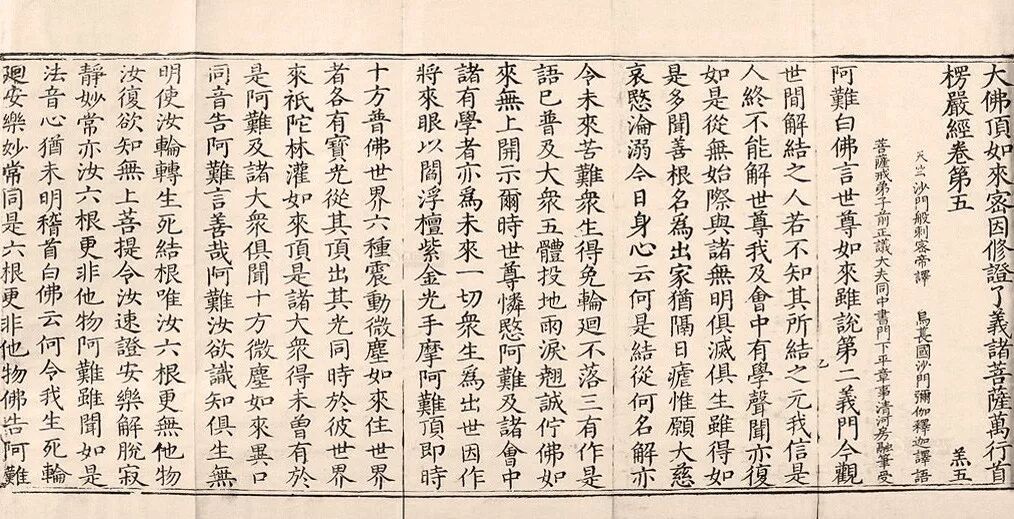 大佛頂如來密因修證了義諸菩薩萬行首
楞嚴經卷第五 羔五
天竺沙門般剌密帝譯 烏萇國沙門彌伽釋迦譯語
菩薩戒弟子前正議大夫同中書門下平章事清河房融筆受
阿難白佛言世尊如來雖說第二義門今觀
世間解結之人若不知其所結之元我信是
人終不能解世尊我及會中有學聲聞亦復
如是從無始際與諸無明俱滅俱生雖得如
是多聞善根名爲出家猶隔日瘧惟願大慈
哀愍淪溺今日身心云何是結從何名解亦
令未來苦難衆生得免輪迴不落三有作是
語已普及大衆五體投地雨淚翹誠佇佛如
來無上開示爾時世尊憐愍阿難及諸會中
諸有學者亦爲未來一切衆生爲出世因作
將來眼以閻浮檀紫金光手摩阿難頂即時
十方普佛世界六種震動微塵如來住世界
者各有寶光從其頂出其光同時於彼世界
來祇陀林灌如來頂是諸大衆得未曾有於
是阿難及諸大衆俱聞十方微塵如來異口
同音告阿難言善哉阿難汝欲識知俱生無
明使汝輪轉生死結根唯汝六根更無他物
汝復欲知無上菩提令汝速證安樂解脫寂
靜妙常亦汝六根更非他物阿難雖聞如是
法音心猶未明稽首白佛云何令我生死輪
迴安樂妙常同是六根更非他物佛告阿難